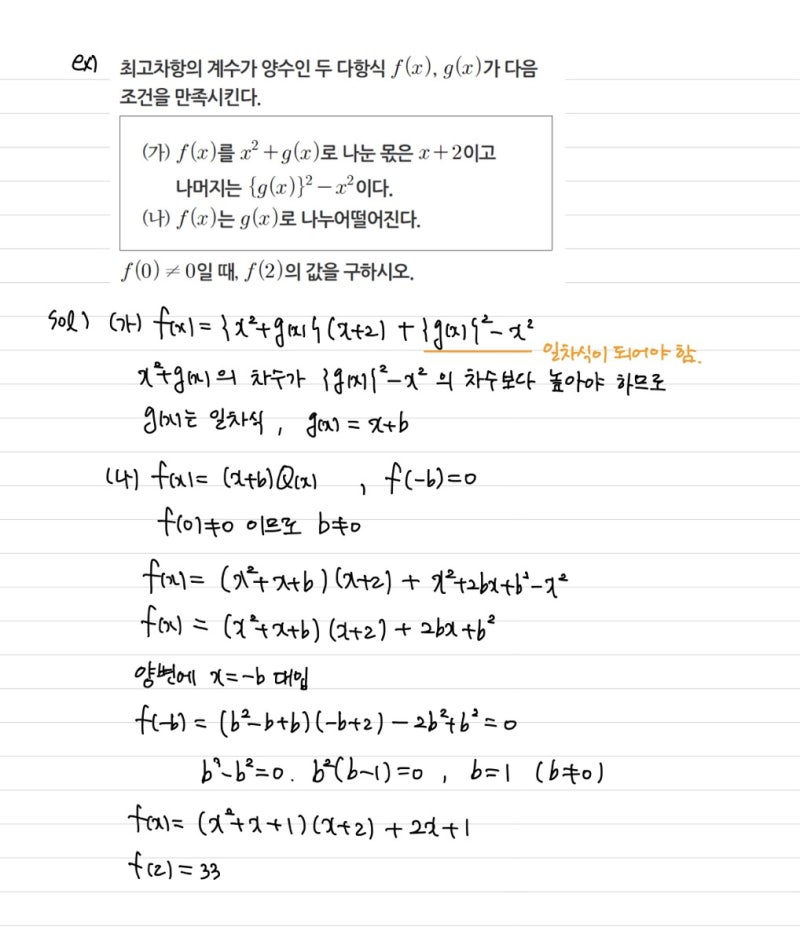 ex) 최고차항의 계수가 양수인 두 다항식 f(x), g(x)가 다음
조건을 만족시킨다.
(가) f(x)를 x²+g(x)로 나눈 몫은 x+2이고
나머지는 {g(x)}²-x²이다.
(나) f(x)는 g(x)로 나누어떨어진다.
f(0)≠0일 때, f(2)의 값을 구하시오.
sol) (가) f(x) = {x²+g(x)}(x+2) + {g(x)}²-x²
일차식이 되어야 함.
x²+g(x)의 차수가 {g(x)}²-x²의 차수보다 높아야 하므로
g(x)는 일차식, g(x) = x+b
(나) f(x) = (x+b)Q(x) , f(-b)=0
f(0)≠0 이므로 b≠0
f(x) = (x²+x+b)(x+2) + x²+2bx+b²-x²
f(x) = (x²+x+b)(x+2) + 2bx+b²
양변에 x=-b 대입
f(-b) = (b²-b+b)(-b+2) - 2b²+b² = 0
b³-b²=0. b²(b-1)=0 , b=1 (b≠0)
f(x) = (x²+x+1)(x+2) + 2x+1
f(2) = 33